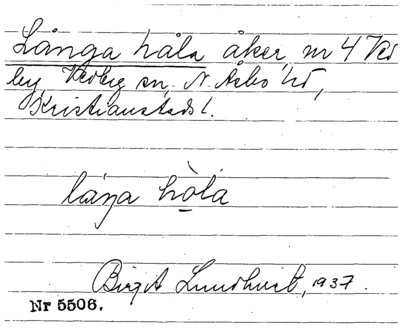 Långa håla åker, nr 4 Ved
by, Vedby sn, N. Åsbo hd,
Kristianstads l.
låŋa hòla
Birgit Lundkvist, 1937.
Nr 5506.